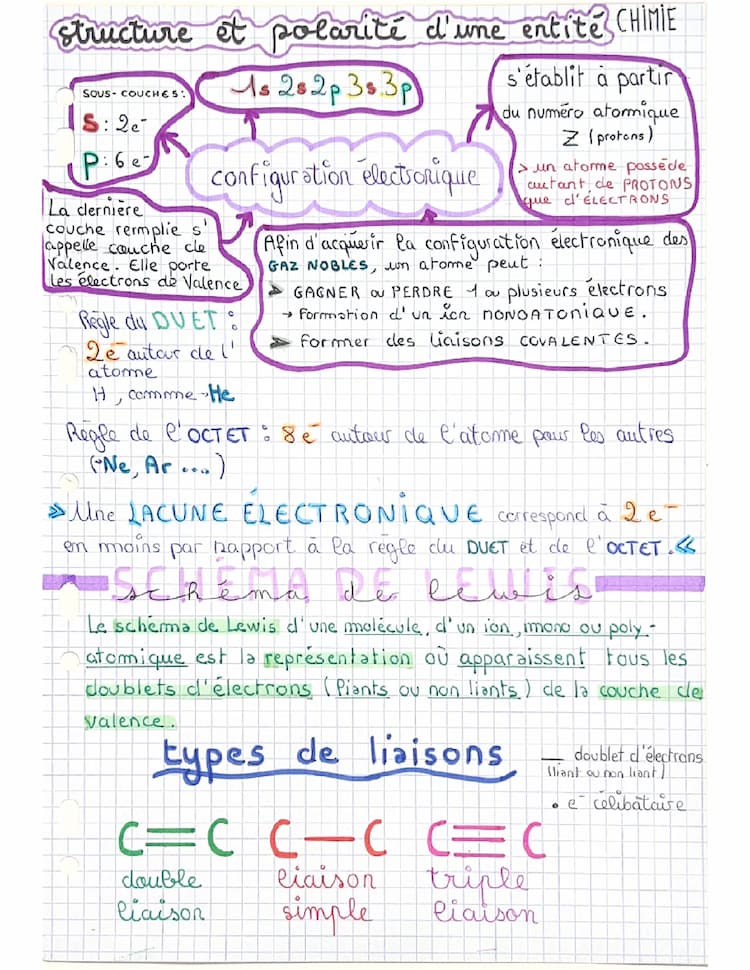 structure et polarité d'une entité CHIMIE
SOUS-COUCHES:
S: 2e-
P: 6e-
1s 2s 2p 3s 3p
s'établit à partir
du numéro atomique
Z (protons)
> un atome possède
autant de PROTONS
que d'ÉLECTRONS
configuration électronique
La dernière
couche remplie s'
appelle couche de
valence. Elle porte
les électrons de valence
Afin d'acquérir la configuration électronique des
GAZ NOBLES, un atome peut :
➤ GAGNER ou PERDRE 1 ou plusieurs électrons
→ Formation d'un ion MONOATONIQUE.
➤ Former des liaisons COVALENTES.
Règle du DUET :
2e- autour de l'
atome
H, comme He
Règle de l'OCTET : 8e- autour de l'atome pour les autres
(Ne, Ar ....)
» Une LACUNE ÉLECTRONIQUE correspond à 2e-
en moins par rapport à la règle du DUET et de l'OCTET. «
SCHÉMA DE LEWIS
schéma de lewis
Le schéma de Lewis d'une molécule, d'un ion, mono ou poly-
atomique est la représentation où apparaissent tous les
doublets d'électrons (liants ou non liants) de la couche de
valence.
types de liaisons
— doublet d'électrons
(liant ou non liant)
• e- célibataire
C=C C—C C≡C
double liaison triple
liaison simple liaison